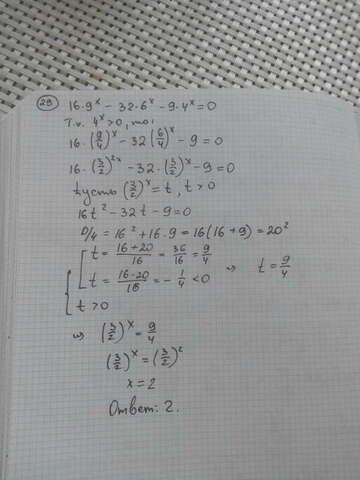 29) 16·9ˣ − 32·6ˣ − 9·4ˣ = 0
Т.к. 4ˣ > 0, то:
16·(9/4)ˣ − 32(6/4)ˣ − 9 = 0
16·(3/2)²ˣ − 32·(3/2)ˣ − 9 = 0
Пусть (3/2)ˣ = t, t > 0
16t² − 32t − 9 = 0
D/4 = 16² + 16·9 = 16(16 + 9) = 20²
t = (16+20)/16 = 36/16 = 9/4
t = (16-20)/16 = − 1/4 < 0 ⇒ t = 9/4
t > 0
⇒ (3/2)ˣ = 9/4
(3/2)ˣ = (3/2)²
x = 2
Ответ: 2.